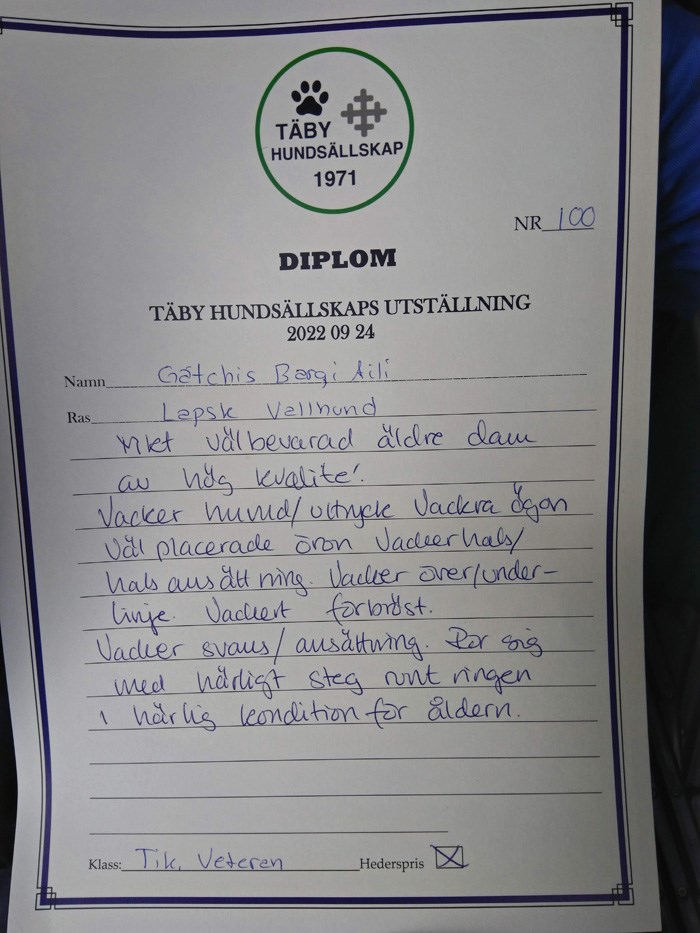 TÄBY
HUNDSÄLLSKAP
1971
NR 100
DIPLOM
TÄBY HUNDSÄLLSKAPS UTSTÄLLNING
2022 09 24
Namn Gátchis Bargi Aili
Ras Lapsk Vallhund
Mket välbevarad äldre dam
av hög kvalite!
Vacker huvud/uttryck Vackra ögon
Väl placerade öron Vacker hals/
hals ansättning. Vacker över/under-
linje. Vackert förbröst.
Vacker svans/ansättning. Rör sig
med härligt steg runt ringen
i härlig kondition för åldern.
Klass: Tik, Veteran Hederspris